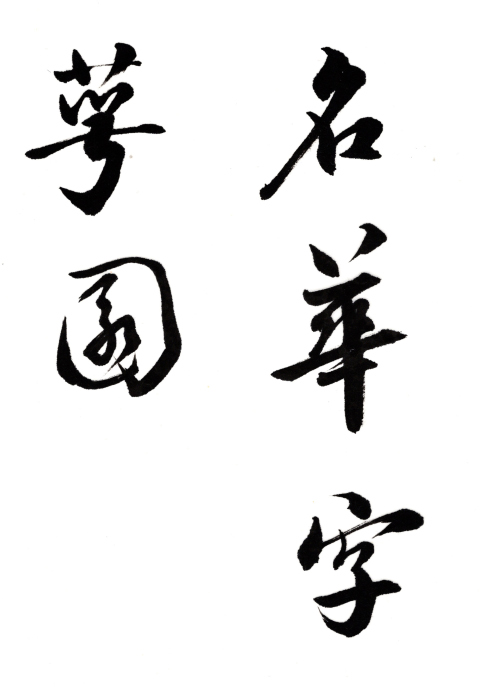 名華字
萼園